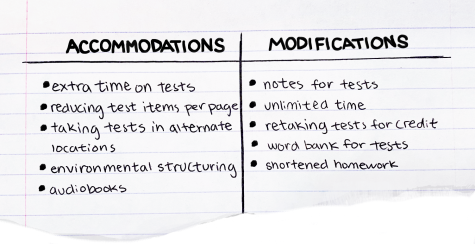 ACCOMMODATIONS
• extra time on tests
• reducing test items per page
• taking tests in alternate
locations
• environmental structuring
• audiobooks
MODIFICATIONS
• notes for tests
• unlimited time
• retaking tests for credit
• word bank for tests
• shortened homework